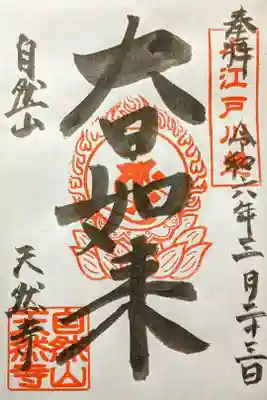 奉拝
江戸川
令和六年三月二十三日
大日如来
自然山
天然寺
自然山
天然寺